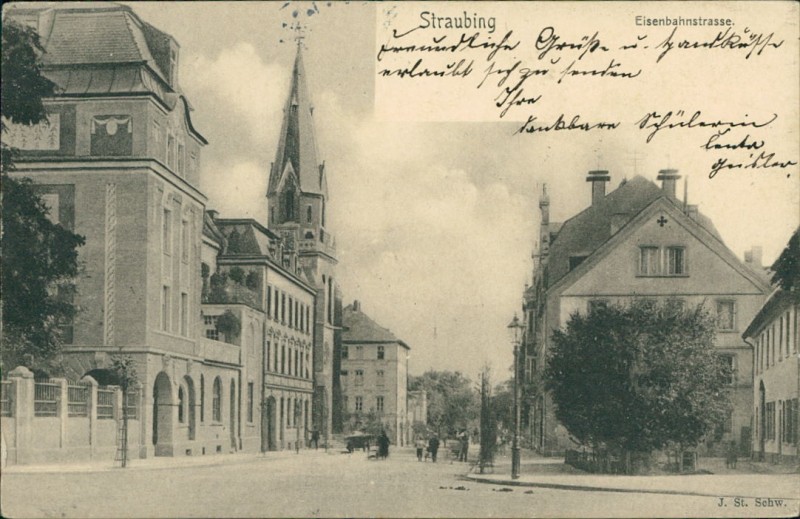 Straubing
Eisenbahnstrasse.
Freundliche Grüße u. Handküsse
erlaubt sich zu senden
Ihre
dankbare Schülerin
Geisler.
J. St. Schw.